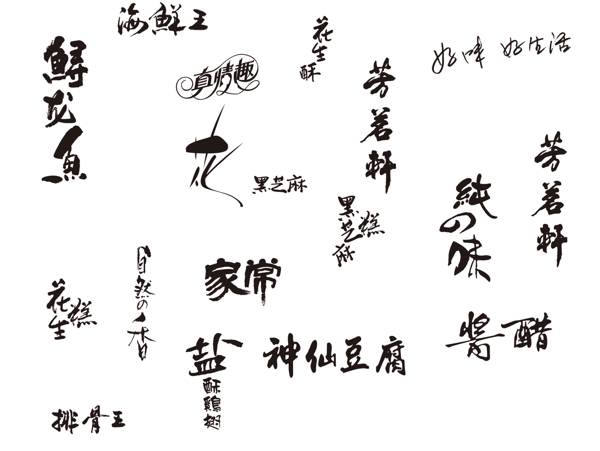 海鮮王
花生
酥
好味 好生活
鱘龙魚
真情趣
芳茗軒
花
黑芝麻
芳茗軒
純の味
黑芝麻
糕
自然の香
家常
花生
糕
盐
酥鷄翅
神仙豆腐
醬醋
排骨王